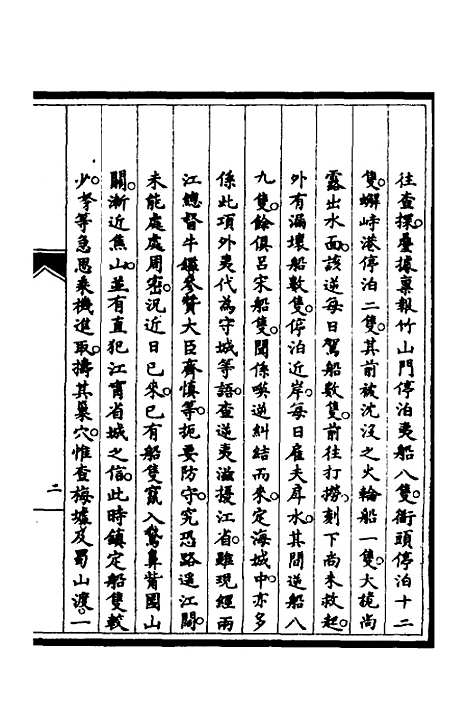 往查探。疊據稟報竹山門停泊夷船八隻。衜頭停泊十二
隻。㘰峙港停泊二隻。其前被沈没之火輪船一隻。大桅尚
露出水面。該逆每日駕船數隻。前往打撈。刻下尚未救起。
外有漏壞船數隻。停泊近岸。每日雇夫戽水。其間逆船八
九隻。餘俱吕宋船隻。聞係㖟逆糾結而來。定海城中。亦多
係此項外夷代為守城等語。查逆夷滋擾江省。雖現經兩
江總督牛鑑參贊大臣齊慎等。扼要防守。究恐路遥江闊。
未能處處周密。況近日已來。已有船隻竄入鵞鼻背圌山
關。漸近焦山。並有直犯江甯省城之信。此時鎮定船隻較
少。李等急思乘機進取。擣其巢穴。惟查梅墟及蜀山渡。一
二